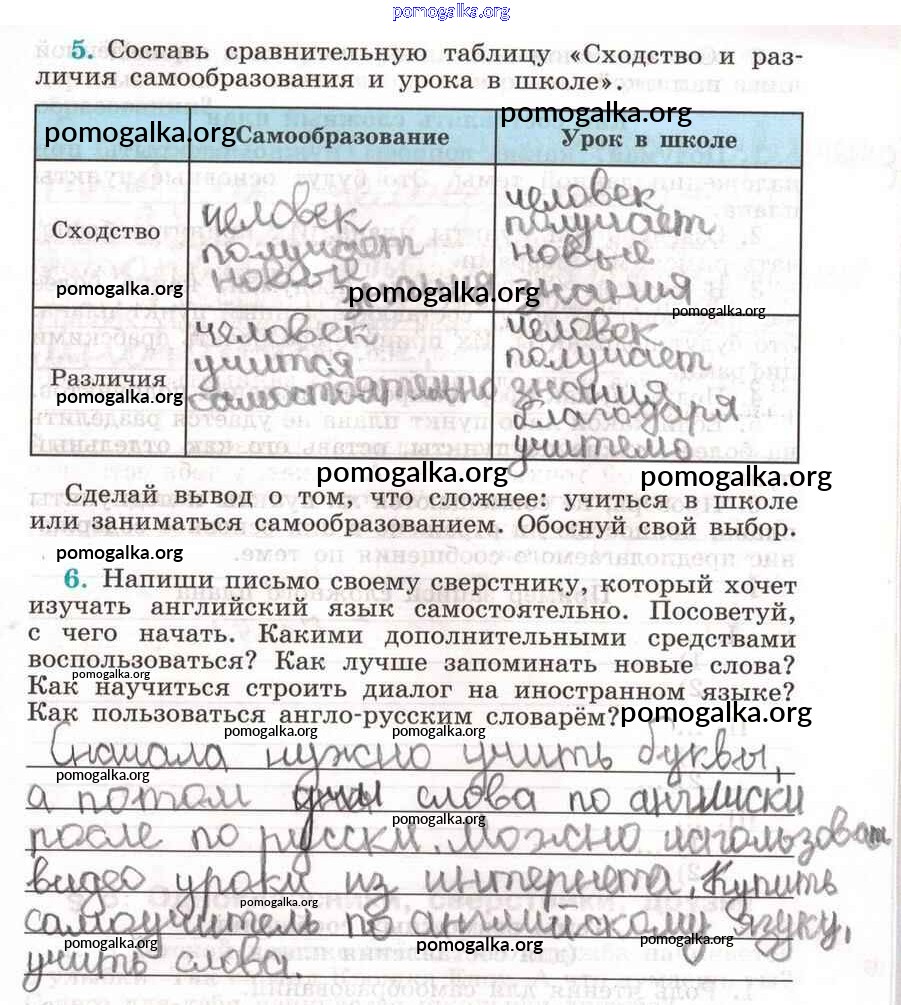 pomogalka.org
5. Составь сравнительную таблицу «Сходство и раз-
личия самообразования и урока в школе».
pomogalka.org
Самообразование
pomogalka.org
Урок в школе
Сходство
человек
получает
новые
знания
человек
получает
новые
знания
pomogalka.org
pomogalka.org
pomogalka.org
Различия
pomogalka.org
человек
учится
самостоятельно
человек
получает
знания
благодаря
учителю
pomogalka.org
pomogalka.org
Сделай вывод о том, что сложнее: учиться в школе
или заниматься самообразованием. Обоснуй свой выбор.
pomogalka.org
6. Напиши письмо своему сверстнику, который хочет
изучать английский язык самостоятельно. Посоветуй,
с чего начать. Какими дополнительными средствами
воспользоваться? Как лучше запоминать новые слова?
pomogalka.org
Как научиться строить диалог на иностранном языке?
Как пользоваться англо-русским словарём?
pomogalka.org
pomogalka.org
pomogalka.org
Сначала нужно учить буквы,
pomogalka.org
а потом слова по англиски
pomogalka.org
после по русски. Можно использоват
видео уроки из интернета, Купить
pomogalka.org
самоучитель по английскому языку,
pomogalka.org
pomogalka.org
pomogalka.org
учить слова.